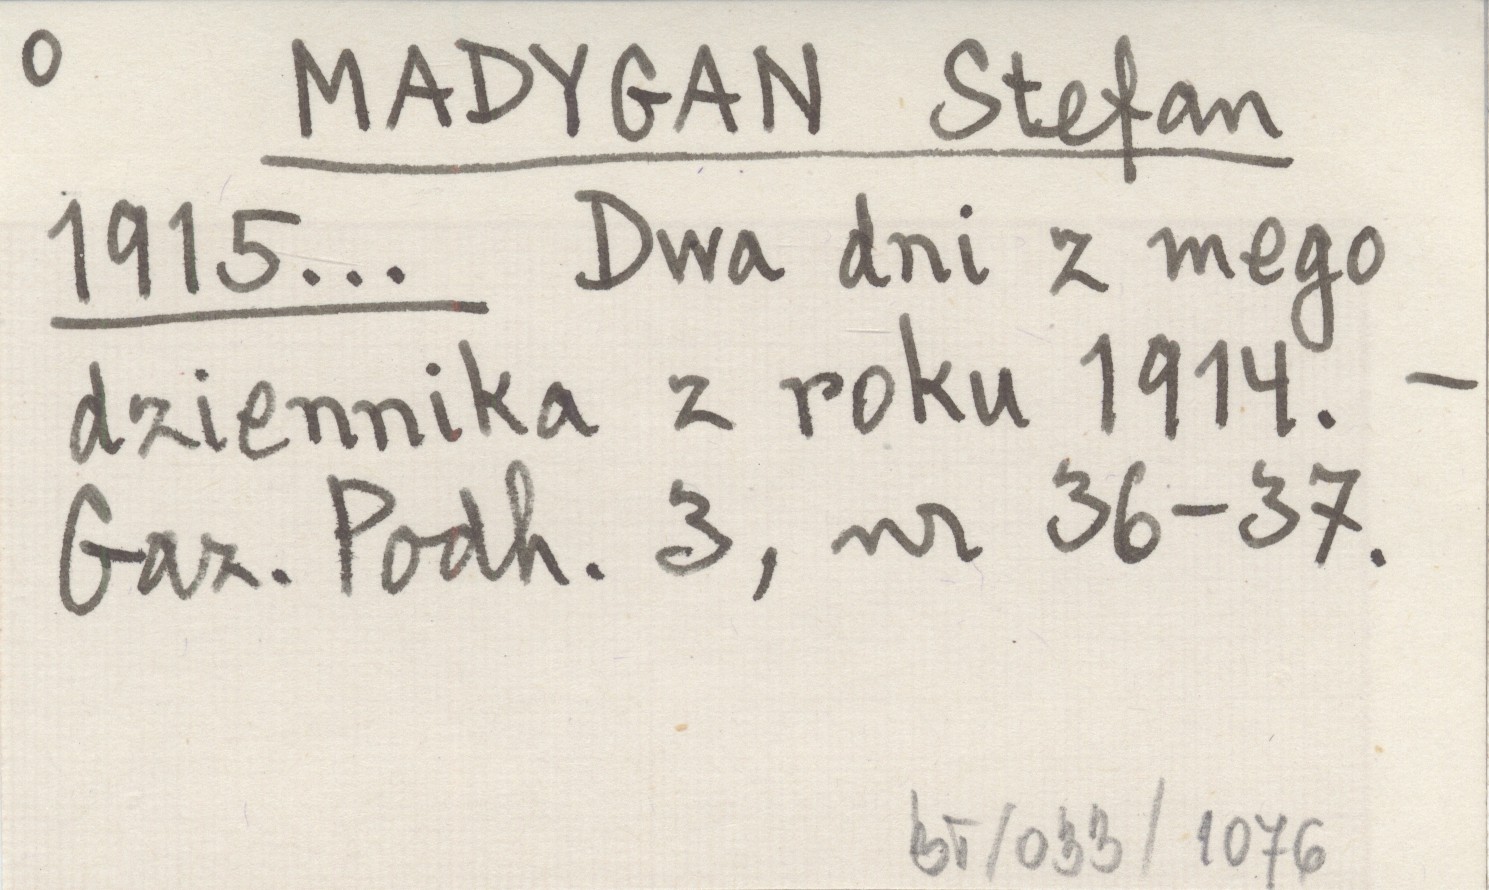 O MADYGAN Stefan
1915... Dwa dni z mego
dziennika z roku 1914. –
Gaz. Podh. 3, nr 36–37.
/033/1076